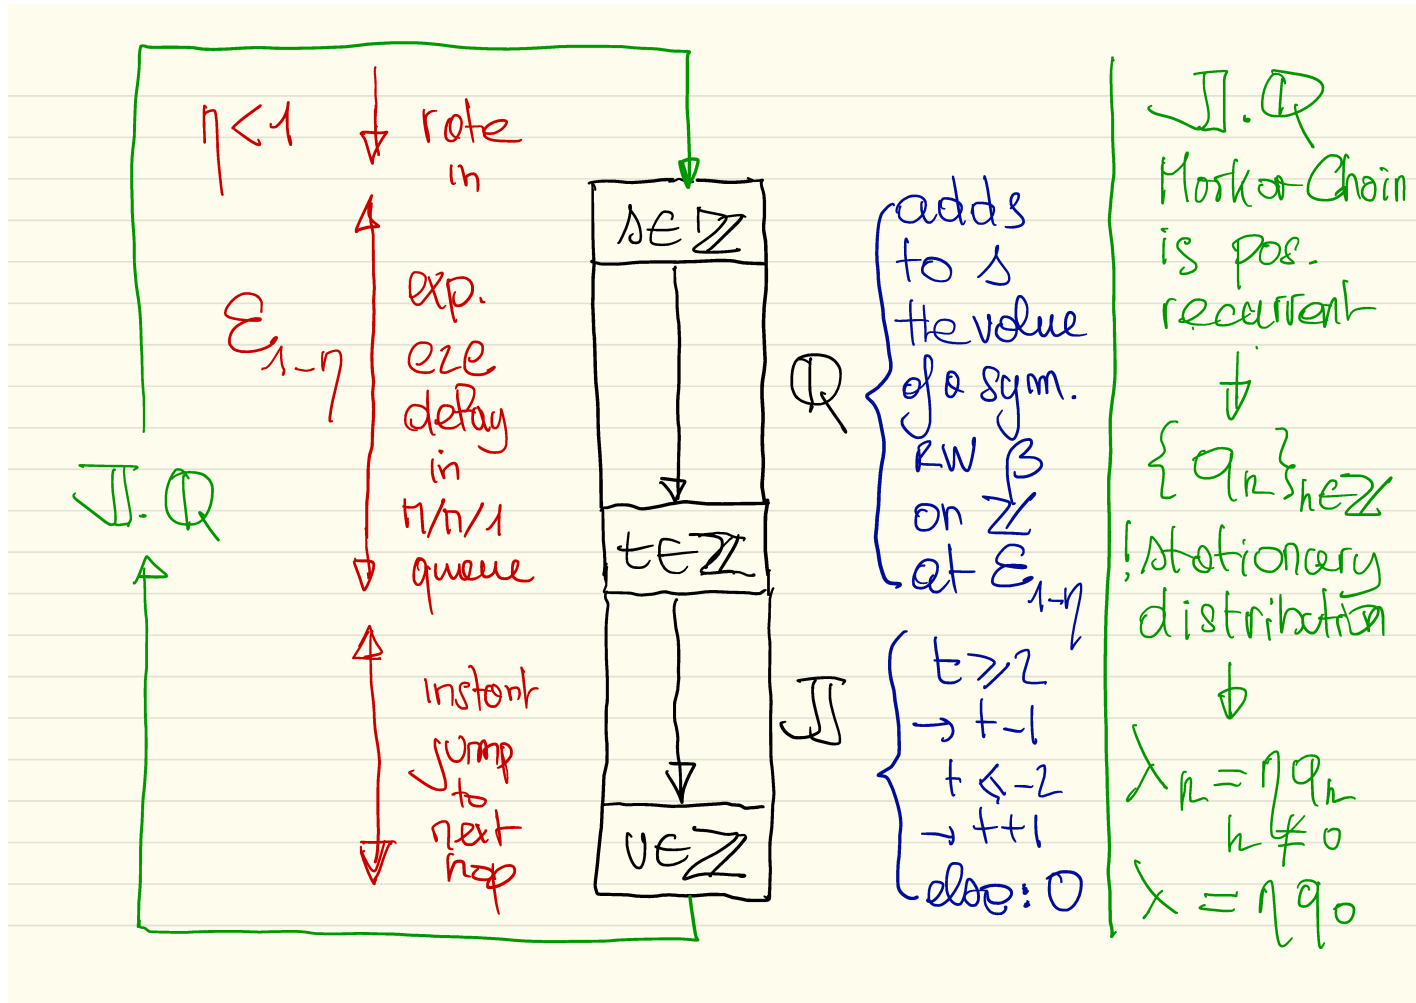 η<1
rate
in
ℰ₁₋η
exp.
eze
delay
in
M/M/1
queue
instant
jump
to
next
hop
𝕁.ℚ
s∈ℤ
t∈ℤ
v∈ℤ
ℚ
𝕁
adds
to s
the value
of a sym.
RW β
on ℤ
at ℰ₁₋η
t⩾2
→ t-1
t⩽-2
→ t+1
else: 0
𝕁.ℚ
Markov Chain
is pos.
recurrent
{qₖ}ₖ∈ℤ
! stationary
distribution
λₖ = ηqₖ
k≠0
λ = ηq₀